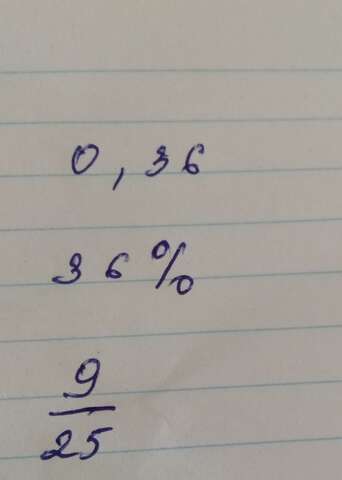 0,36
36%
9/25